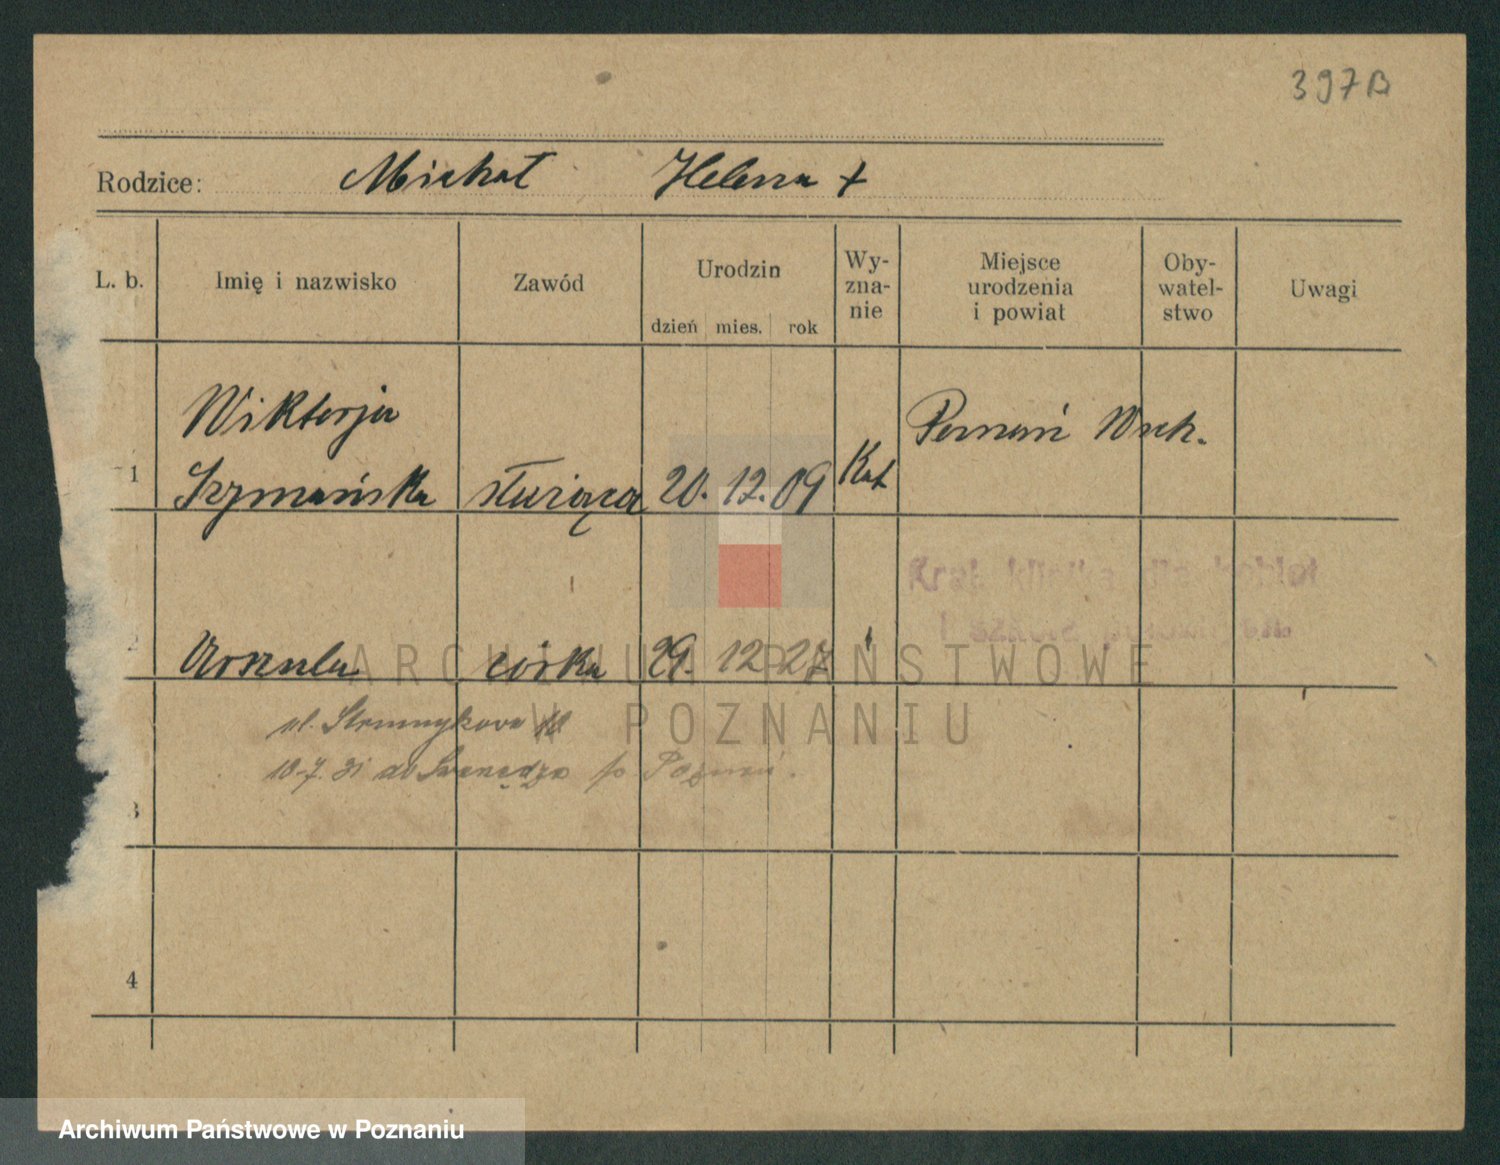 397B
Rodzice: Michał Helena +
L. b. Imię i nazwisko Zawód Urodzin dzień mies. rok Wy-zna-nie Miejsce urodzenia i powiat Oby-watel-stwo Uwagi
Wiktorja
1 Szymańska służąca 20. 12. 09 Kat Poznań
2 Urszula córka 29. 12 27
ul.
10-7. 31 do Swarzędza Poznań.
3
4
ARCHIWUM PAŃSTWOWE
W POZNANIU
Archiwum Państwowe w Poznaniu